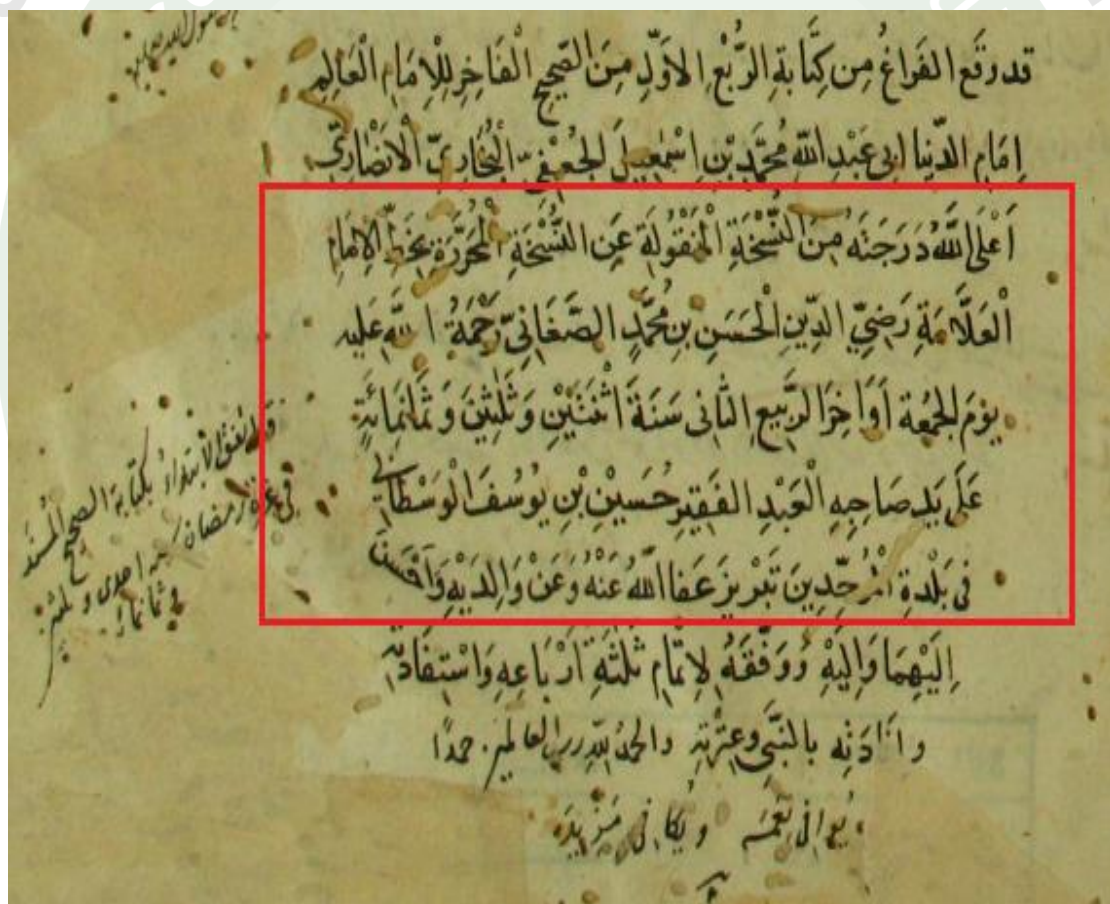 قد وقع الفراغ من كِتَابةِ الرُّبْعِ الاَوَّلِ مِنَ الصَّحِيحِ الْفَاخِرِ لِلْاِمَامِ الْعَالِمِ
اِمَامِ الدّنيا ابى عَبْدِ اللهِ مُحَمَّدِ بْنِ اِسْمٰعِيلَ الجُعْفِىّ الْبُخَارِىّ الْاَنْصَارِىّ
اَعْلَى اللهُ دَرَجَتَهُ مِنَ النُّسْخَةِ الْمَنْقُولَةِ عَنِ النُّسْخَةِ الْمُحَرَّرَةِ بِخَطِّ الاِمَامِ
الْعَلَّامَةِ رَضِيِّ الدِّينِ الْحَسَنِ بْنِ مُحَمَّدٍ الصَّغَانِىّ رَحْمَةُ اللهِ عليه
يوْمَ الجُمُعة اَوَاخِرَ الرَّبِيعِ الثَّانى سَنَةَ اثْنَتَيْنِ وَثَلٰثِينَ وَثَمَانِمِائَةٍ
عَلَى يَدِ صَاحِبِهِ الْعَبْدِ الفَقِيرِ حُسَيْنِ بْنِ يُوسُفَ الْوَسْطَانِي
فى بَلْدَةِ الْمُوَحِّدِينَ تَبْرِيزَ عَفَا اللهُ عَنْهُ وَعَنْ وَالِدَيْهِ وَاَحْسَنَ
اِلَيْهِمَا وَاِلَيْهِ وَوَفَّقَهُ لِاِتْمَامِ ثَلٰثَةِ اَرْبَاعِهِ وَاسْتِفَادَتِهِ
وافَادَتِه بِالنَّبِىِّ وعِتْرَتِهِ والحمدُ للهِ رب العالمين حمدًا
يُوافى نِعَمَه ويُكافى مَزِيدَه
وقد اتفق الابتداءُ بكتابة الصحيح المُسْنَد
فى غرة رمضان سنه احدى وثلثين
وثمانمائه